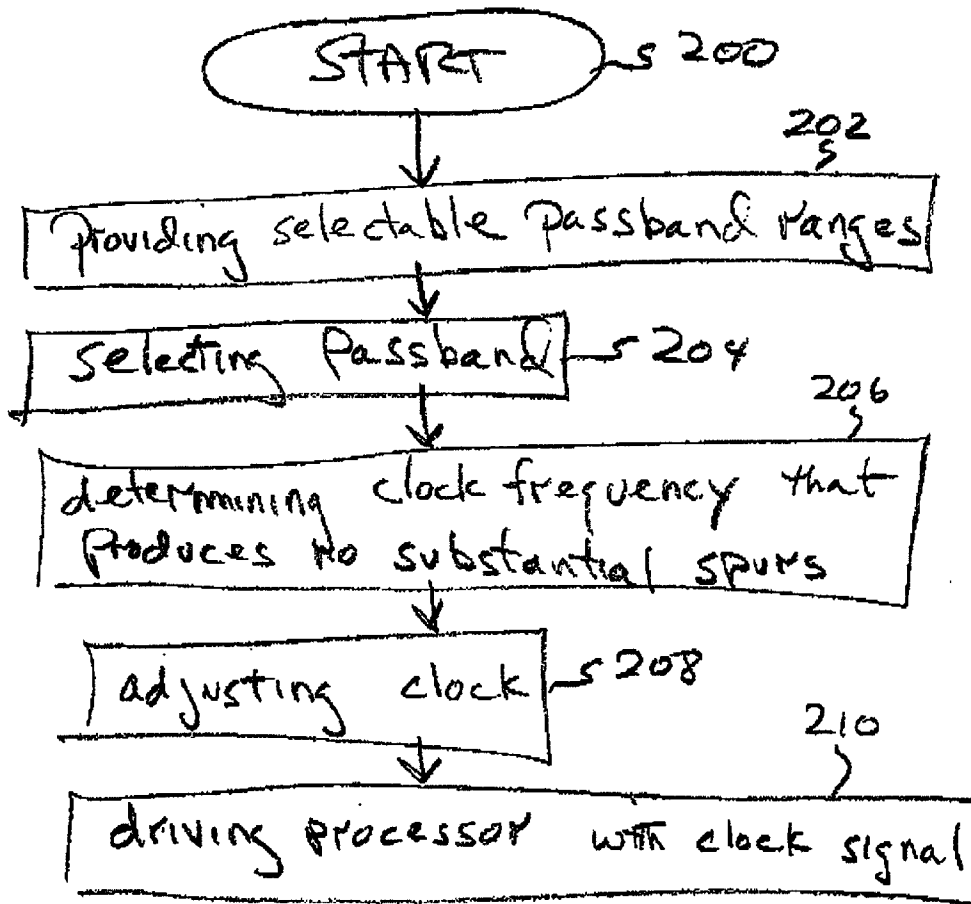 START 200
202
providing selectable passband ranges
selecting Passband 204
206
determining clock frequency that
produces no substantial spurs
adjusting clock 208
210
driving processor with clock signal